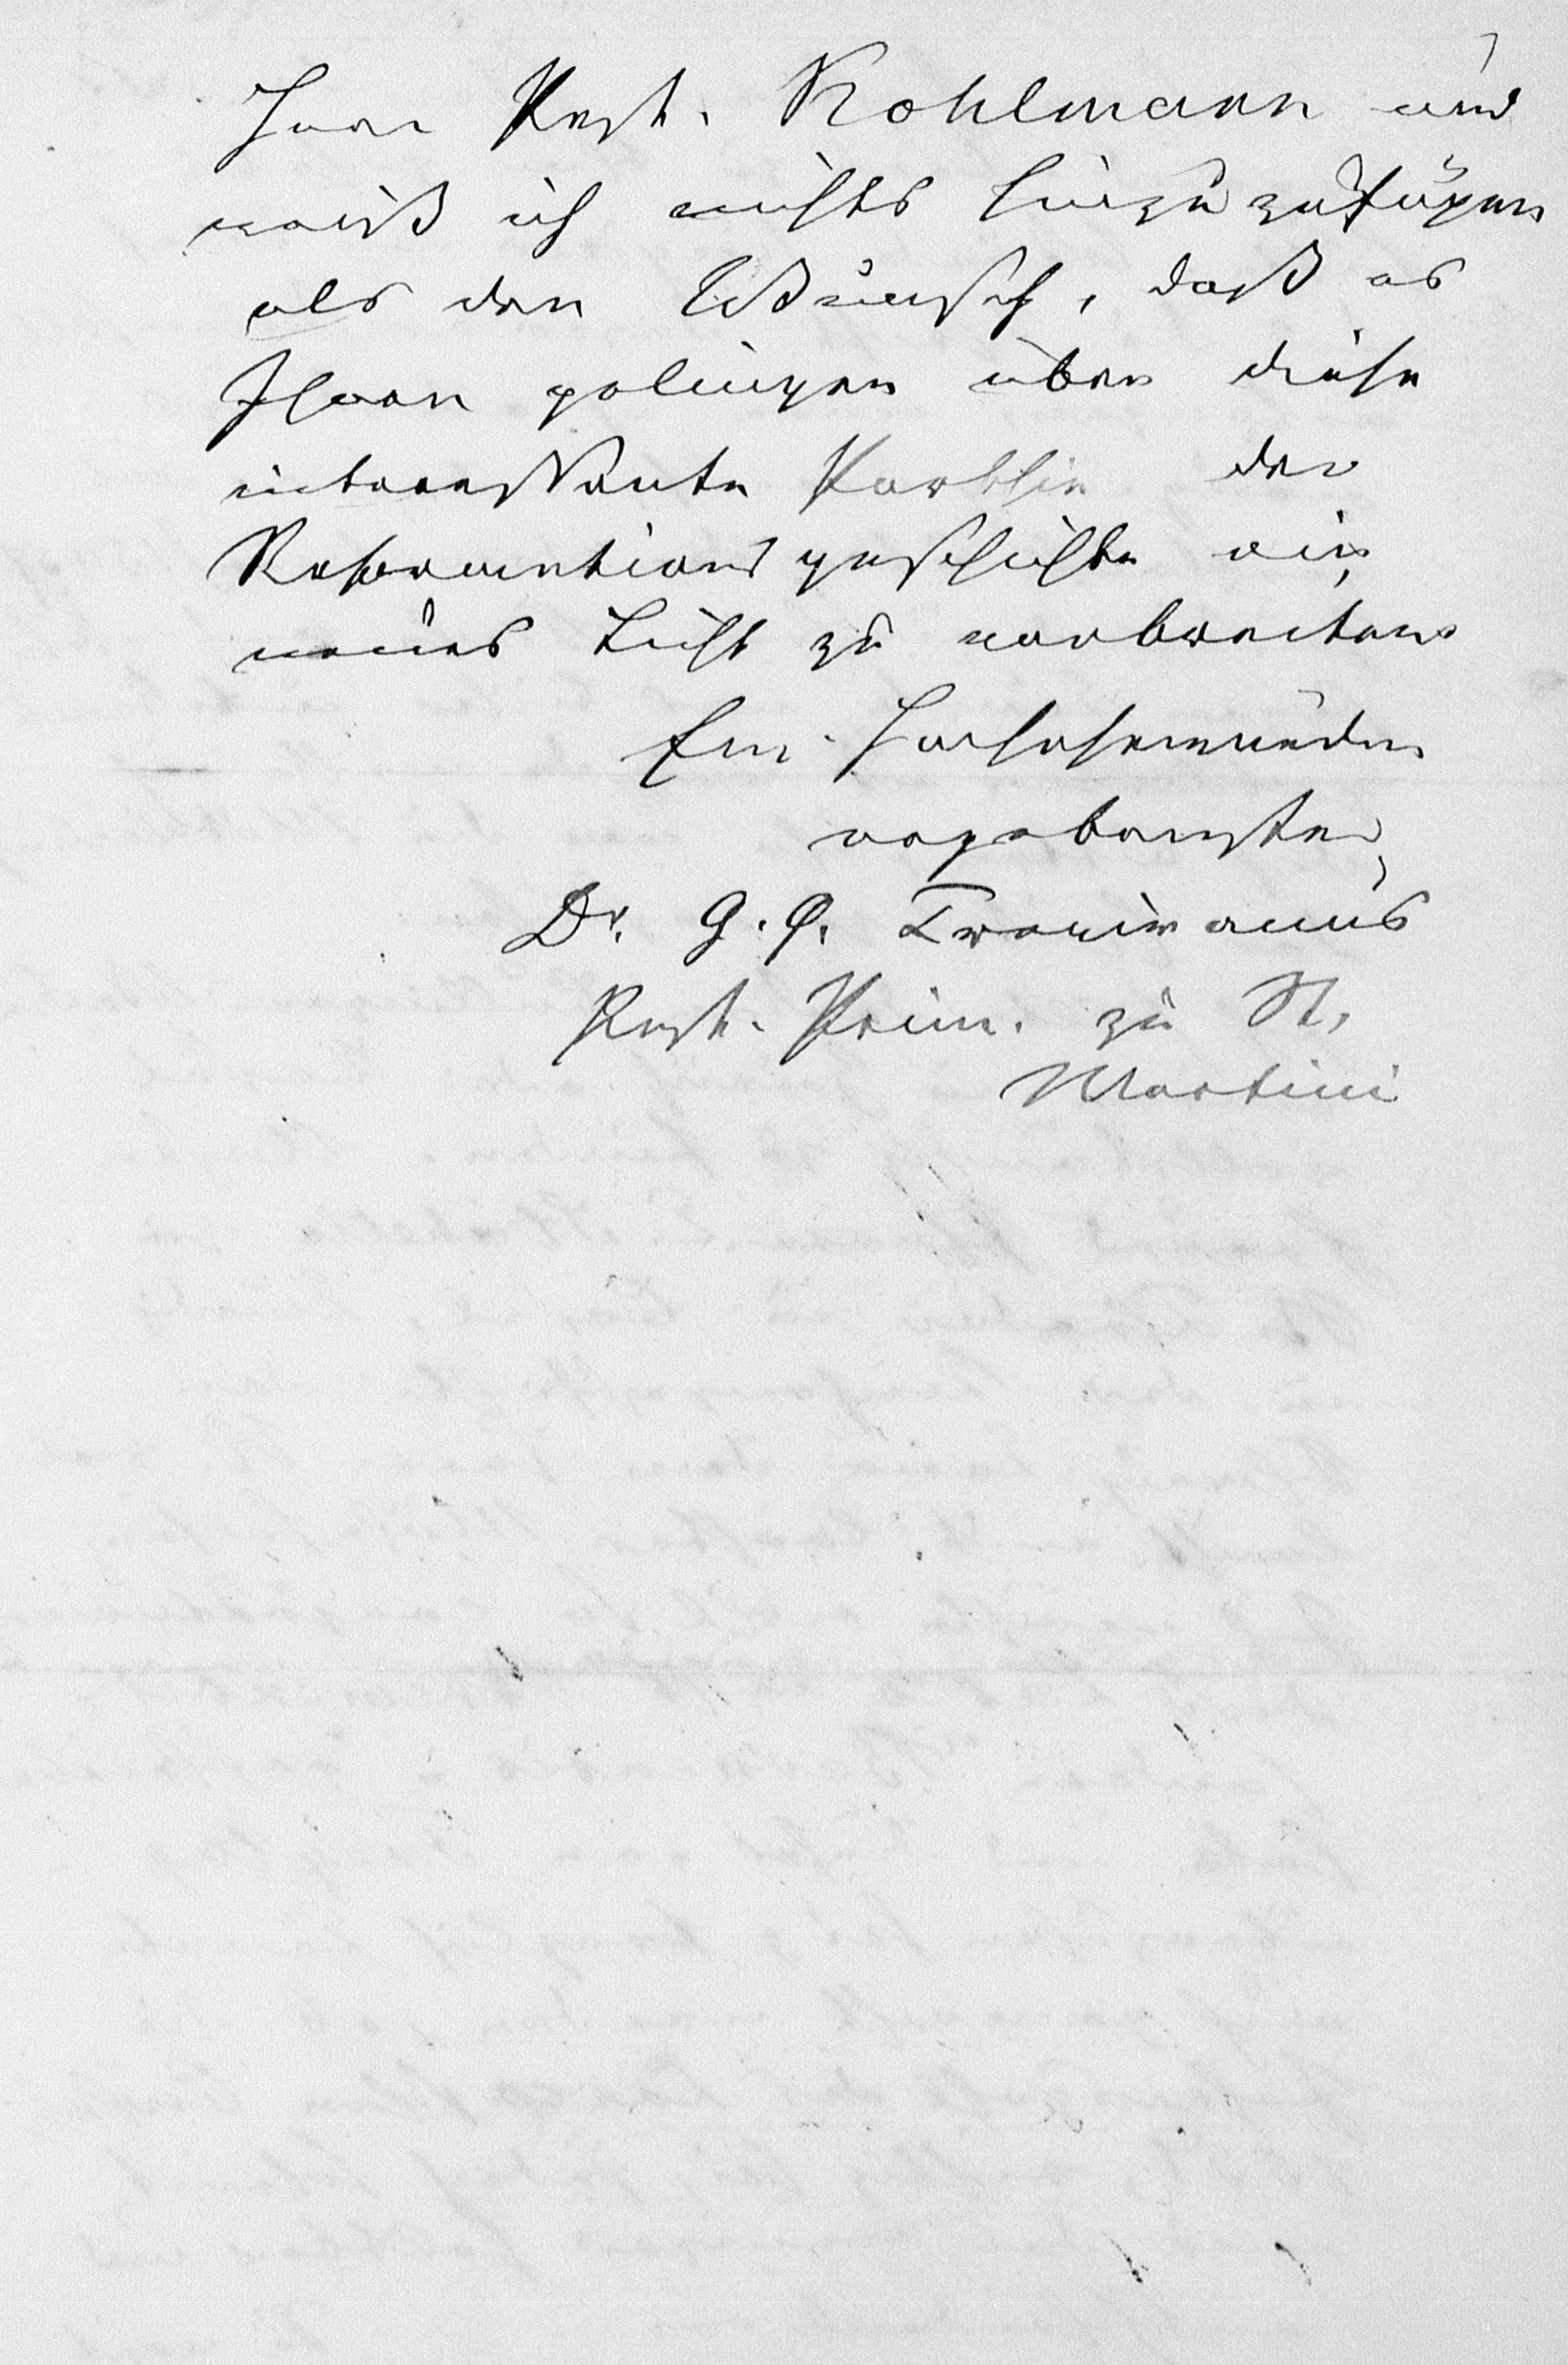 Herrn Past. Kohlmann und
weiß ich nichts hinzuzufügen
als den Wunsch, daß es
Ihnen gelingen über diese
interessante Parthie der
Reformationsgeschichte ein
neues Licht zu verbreiten
Ew. Hochehrwürden
ergebenster
Dr. G. G. Treviranus
Past. Prim. zu St.
Martini